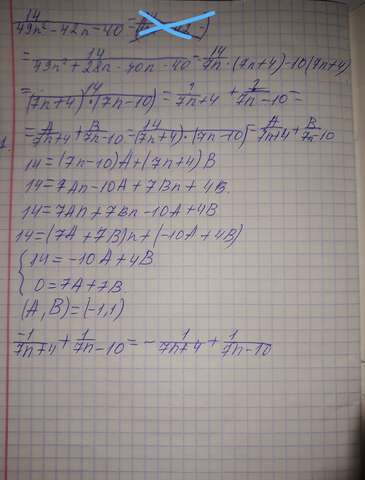 14/(49n² - 42n - 40) =
= 14/(49n² + 28n - 70n - 40) = 14/(7n · (7n+4) - 10(7n+4))
= 14/((7n+4) · (7n-10)) = ?/(7n+4) + ?/(7n-10) =
= A/(7n+4) + B/(7n-10) = 14/((7n+4) · (7n-10)) = A/(7n+4) + B/(7n-10)
14 = (7n-10)A + (7n+4)B
14 = 7An - 10A + 7Bn + 4B.
14 = 7An + 7Bn - 10A + 4B
14 = (7A + 7B)n + (-10A + 4B)
{ 14 = -10A + 4B
0 = 7A + 7B
(A, B) = (-1, 1)
-1/(7n+4) + 1/(7n-10) = - 1/(7n+4) + 1/(7n-10)